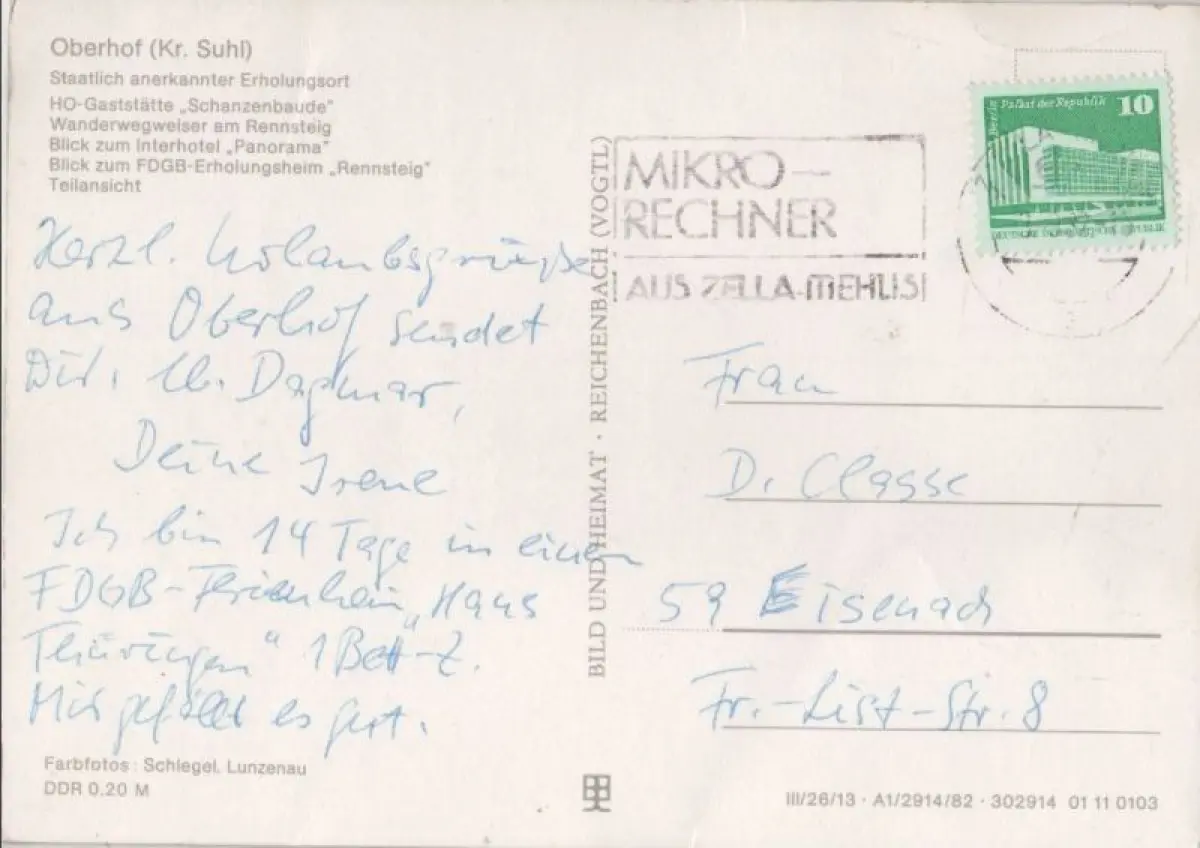 Oberhof (Kr. Suhl)
Staatlich anerkannter Erholungsort
HO-Gaststätte „Schanzenbaude"
Wanderwegweiser am Rennsteig
Blick zum Interhotel „Panorama"
Blick zum FDGB-Erholungsheim „Rennsteig"
Teilansicht
Herzl. Urlaubsgrüße
aus Oberhof sendet
Dir, lb. Dagmar,
Deine Irene
Ich bin 14 Tage in einem
FDGB-Ferienheim „Haus
Thüringen" 1 Bett-Z.
Mir gefällt es gut.
Farbfotos: Schlegel, Lunzenau
DDR 0,20 M
BILD UND HEIMAT · REICHENBACH (VOGTL)
MIKRO-
RECHNER
AUS ZELLA-MEHLIS
Berlin Palast der Republik 10
Frau
D. Classe
59 Eisenach
Fr.-List-Str. 8
III/26/13 · A1/2914/82 · 302914 01 11 0103